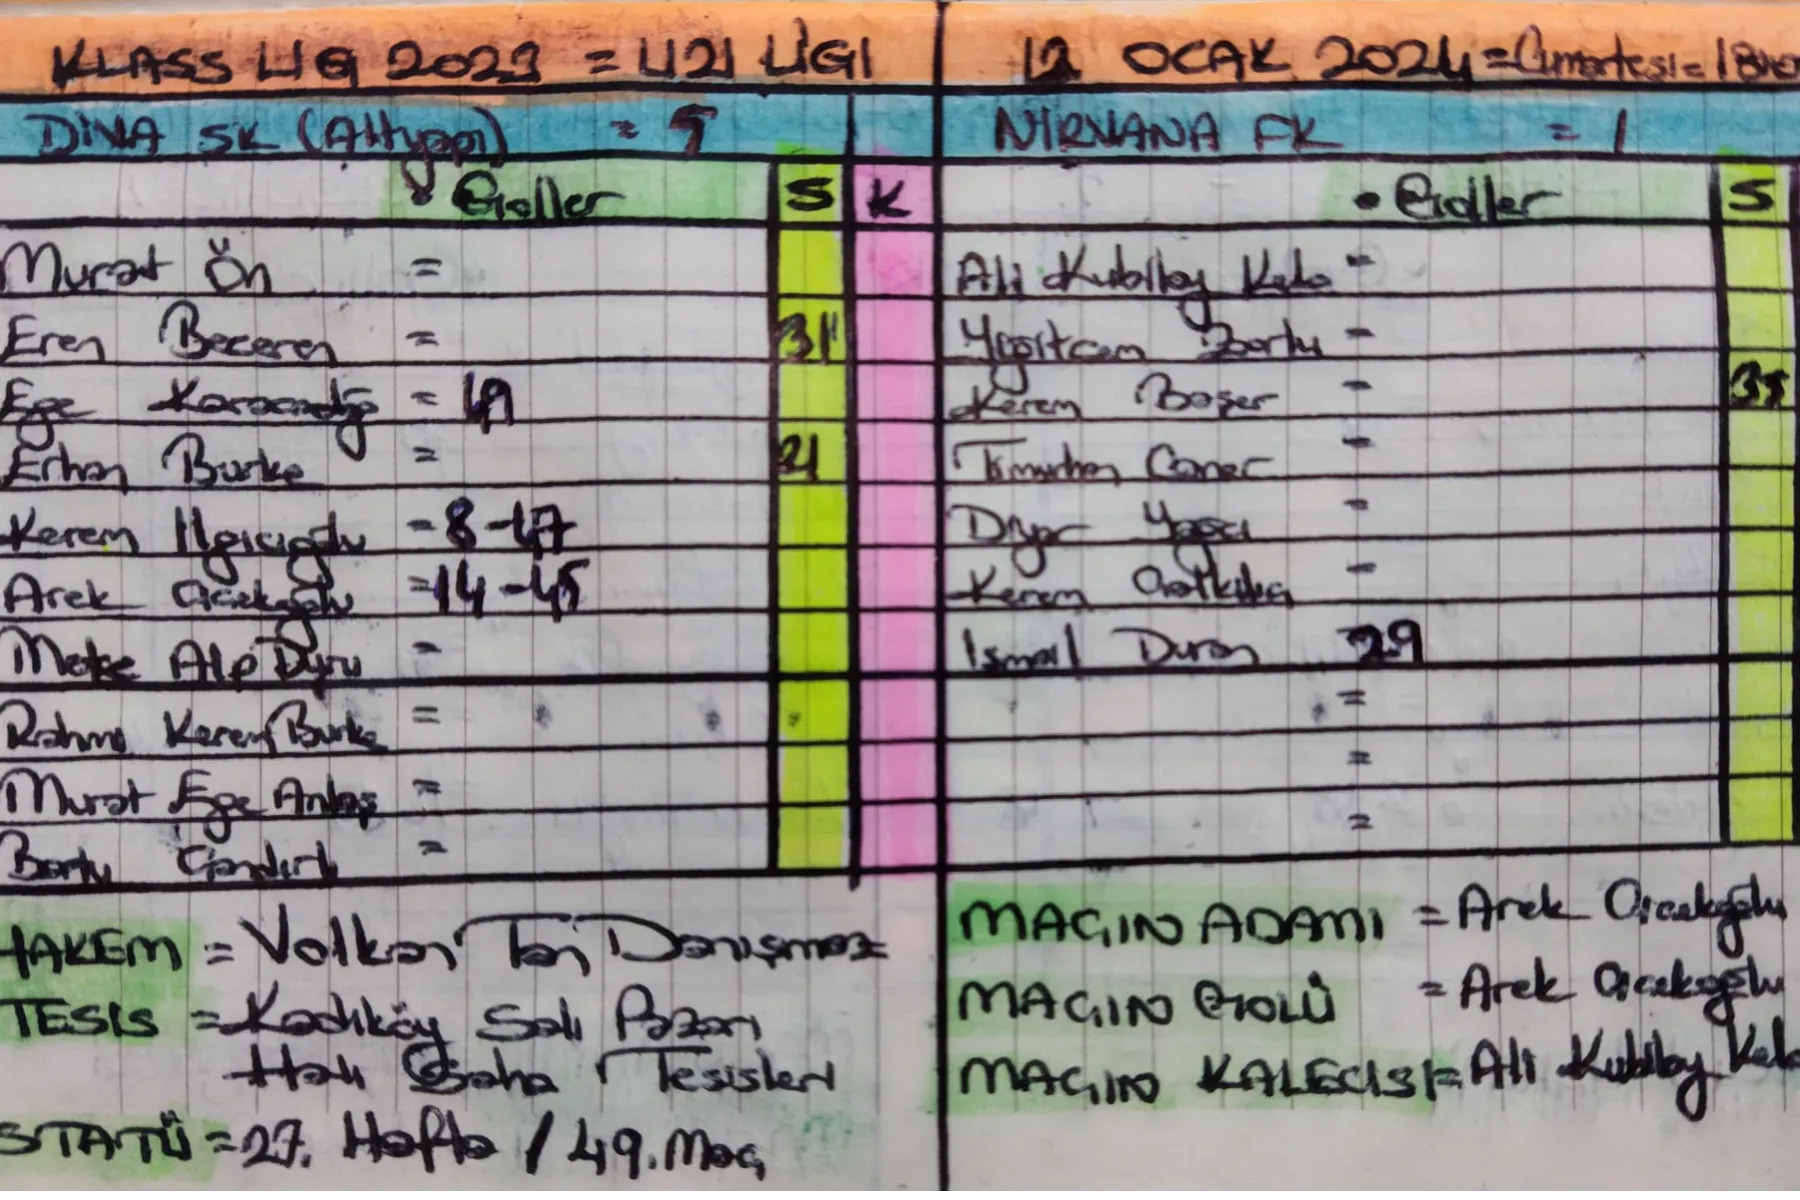 KLASS LİG 2023 = U21 LİGİ
DİVA SK (Altyapı) = 5
• Goller S K
Murat Ön =
Eren Beceren = 31
Ege Karacadağ = 49
Erhan Burke = 21
Kerem Ilgıcıoğlu = 8 - 47
Arek Çiçekoğlu = 14 - 45
Mete Alp Duru =
Rahmi Kerem Burke =
Murat Ege Anlaş =
Bartu Çandırlı =
HAKEM = Volkan Tan Danışmaz
TESİS = Kadıköy Salı Pazarı
Halı Saha Tesisleri
STATÜ = 27. Hafta / 49. Maç
12 OCAK 2024 = Cumartesi = 18
NİRVANA FK = 1
• Goller S
Ali Kubilay Kala =
Yiğitcan Zorlu =
Kerem Başer = 35
Timuçhan Caner =
Diyar Yağcı =
Kerem
İsmail Duran = 29
=
=
=
MAÇIN ADAMI = Arek Çiçekoğlu
MAÇIN GOLÜ = Arek Çiçekoğlu
MAÇIN KALECİSİ = Ali Kubilay Kala